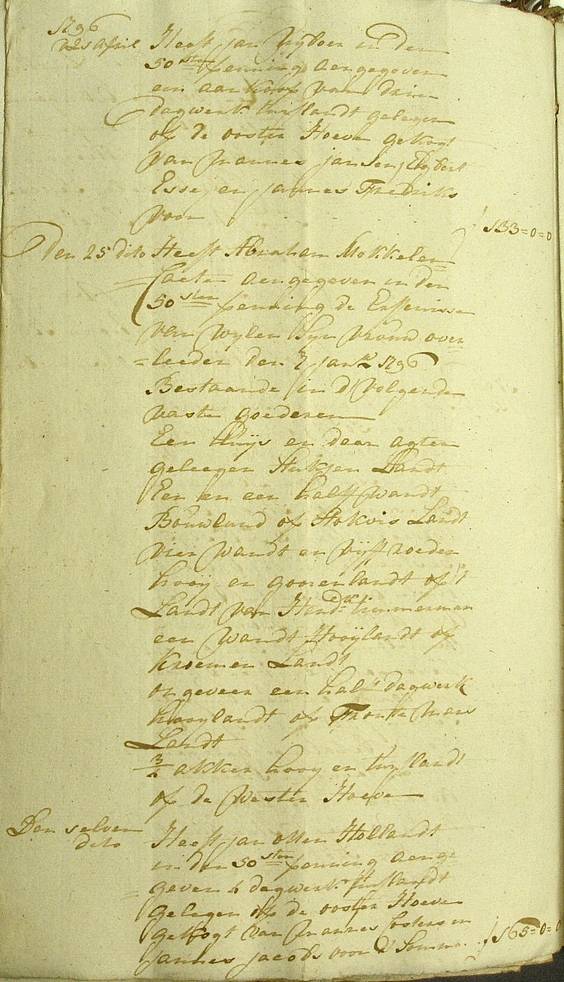 1796
den 25 April Heeft Jan Vijboer in den
50sten penning aengegeven
een aankoop van drie
dagwerk turflandt gelegen
op de ooster Hoeve gekogt
van Mannes Jansen, Elbert
Esse, en Jannes Fredriks
voor f 133=0=0
Den 25 dito Heeft Abraham Mokkelen
Caate aengegeven in den
50sten penning de Erffenisse
van wijlen Sijn vrouw over
=leeden den 7 Jan 1796
Bestaande in d volgende
vaste goederen
Een Huijs en daar agter
geleegen Stukjen Landt
Een en een half Wandt
Bouwland op Stokvis Landt
vier wandt en vijff roeden
hooy en gooren landt op 't
Landt van Hendk Timmerman
een Wandt Hooijlandt op
Kroemen Landt
ongeveer een half dagwerk
hooylandt op
Landt
akker hooy en turflandt
op de Wester Hoeve
Den selven
dito Heeft Jan Otten Hollandt
in den 50sten penning aenge
=geven 4 dagwerk turflandt
gelegen op de ooster Hoeve
gekogt van Mannes en
Jannes Jacobs voor d' Somma f 165=0=0